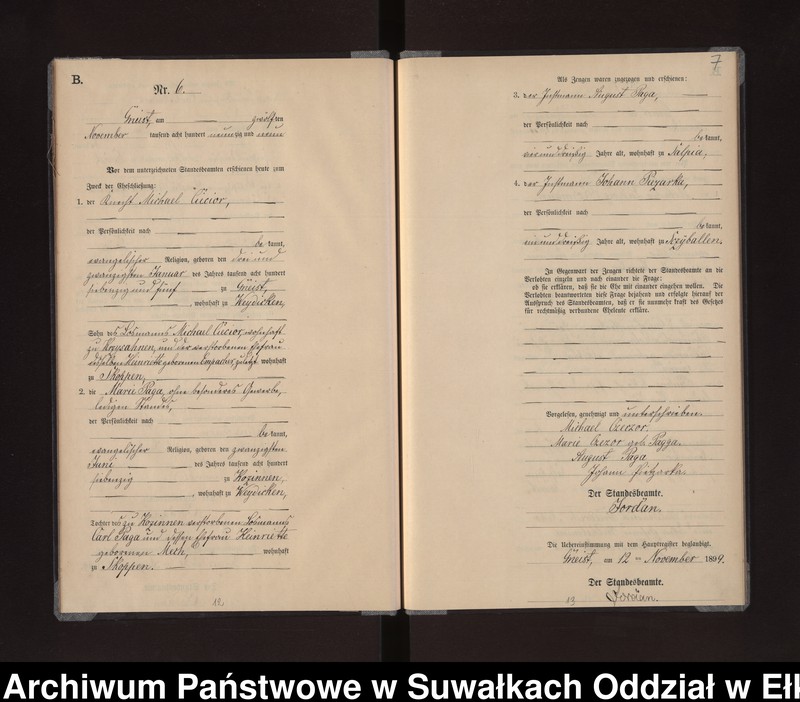 B.
Nr. 6.
Gneist, am zwölften
November tausend acht hundert neunzig und neun
Vor dem unterzeichneten Standesbeamten erschienen heute zum
Zweck der Eheschließung:
1. der Knecht Michael Czicior,
der Persönlichkeit nach
be kannt,
evangelischer Religion, geboren den drei und
zwanzigsten Januar des Jahres tausend acht hundert
siebenzig und fünf zu Gneist,
, wohnhaft zu Weydicken,
Sohn des Losmanns Michael Czicior, wohnhaft
zu Krzysahnen, und der verstorbenen Ehefrau
desselben Henriette geborenen zuletzt wohnhaft
zu Skoppen,
2. die Marie Paga, ohne besonderes Gewerbe,
ledigen Standes,
der Persönlichkeit nach
be kannt,
evangelischer Religion, geboren den zwanzigsten
Juni des Jahres tausend acht hundert
siebenzig zu Kozinnen,
, wohnhaft zu Weydicken,
Tochter des zu Kozinnen verstorbenen Losmanns
Carl Paga und dessen Ehefrau Henriette
geborenen Mich, wohnhaft
zu Skoppen.
12
7
Als Zeugen waren zugezogen und erschienen:
3. der Instmann August Paga,
der Persönlichkeit nach
be kannt,
vierunddreißig Jahre alt, wohnhaft zu
4. der Instmann Johann
der Persönlichkeit nach
be kannt,
Jahre alt, wohnhaft zu Szyballen.
In Gegenwart der Zeugen richtete der Standesbeamte an die
Verlobten einzeln und nach einander die Frage:
ob sie erklären, daß sie die Ehe mit einander eingehen wollen. Die
Verlobten beantworteten diese Frage bejahend und erfolgte hierauf der
Ausspruch des Standesbeamten, daß er sie nunmehr kraft des Gesetzes
für rechtmäßig verbundene Eheleute erkläre.
Vorgelesen, genehmigt und unterschrieben.
Michael Czerzor.
Marie Czezor geb. Pagga.
August Paga
Johann Pietzarka
Der Standesbeamte.
Jordan.
Die Uebereinstimmung mit dem Hauptregister beglaubigt.
Gneist, am 12 ten November 1899.
Der Standesbeamte.
Jordan.
13
Archiwum Państwowe w Suwałkach Oddział w Ełk